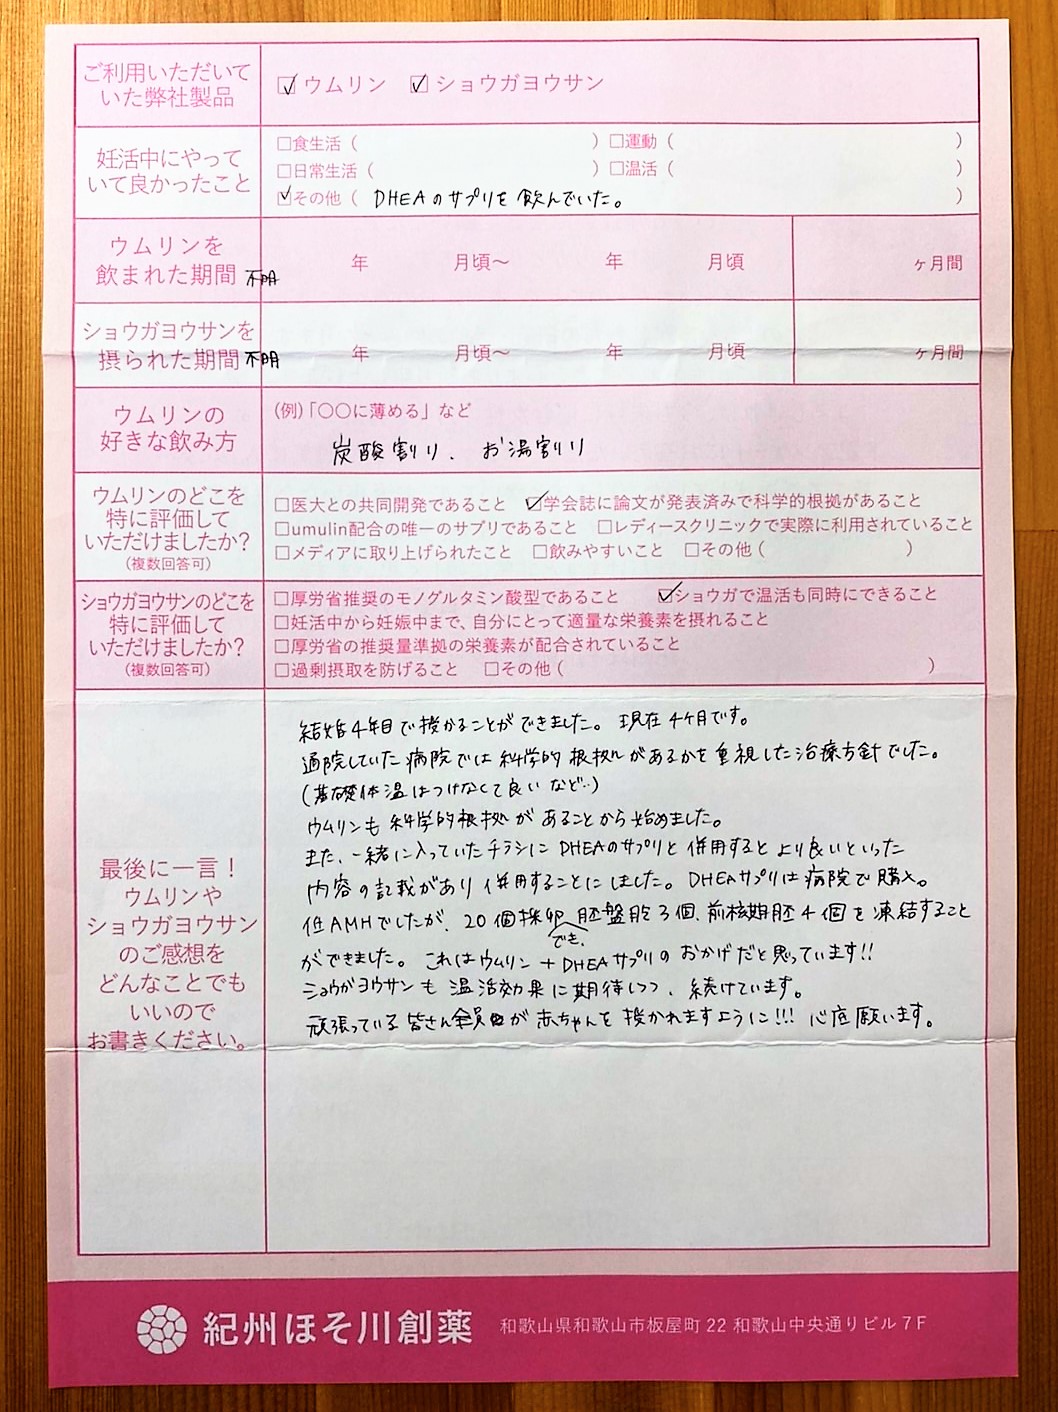 ご利用いただいて
いた弊社製品
☑ウムリン ☑ショウガヨウサン
妊活中にやって
いて良かったこと
□食生活（ ）□運動（ ）
□日常生活（ ）□温活（ ）
☑その他（ DHEAのサプリを飲んでいた。 ）
ウムリンを
飲まれた期間 不明
年 月頃～ 年 月頃 ヶ月間
ショウガヨウサンを
摂られた期間 不明
年 月頃～ 年 月頃 ヶ月間
ウムリンの
好きな飲み方
(例)「〇〇に薄める」など
炭酸割り、お湯割り
ウムリンのどこを
特に評価して
いただけましたか？
(複数回答可)
□医大との共同開発であること ☑学会誌に論文が発表済みで科学的根拠があること
□umulin配合の唯一のサプリであること □レディースクリニックで実際に利用されていること
□メディアに取り上げられたこと □飲みやすいこと □その他（ ）
ショウガヨウサンのどこを
特に評価して
いただけましたか？
(複数回答可)
□厚労省推奨のモノグルタミン酸型であること ☑ショウガで温活も同時にできること
□妊活中から妊娠中まで、自分にとって適量な栄養素を摂れること
□厚労省の推奨量準拠の栄養素が配合されていること
□過剰摂取を防げること □その他（ ）
最後に一言！
ウムリンや
ショウガヨウサン
のご感想を
どんなことでも
いいので
お書きください。
結婚4年目で授かることができました。現在4ヶ月です。
通院していた病院では科学的根拠があるかを重視した治療方針でした。
(基礎体温はつけなくて良いなど…)
ウムリンも科学的根拠があることから始めました。
また、一緒に入っていたチラシにDHEAのサプリと併用するとより良いといった
内容の記載があり併用することにしました。DHEAサプリは病院で購入。
低AMHでしたが、20個採卵でき、胚盤胞3個、前核期胚4個を凍結すること
ができました。これはウムリン＋DHEAサプリのおかげだと思っています!!
ショウガヨウサンも温活効果に期待しつつ、続けています。
頑張っている皆さん全員が赤ちゃんを授かれますように!!! 心底願います。
紀州ほそ川創薬 和歌山県和歌山市板屋町22 和歌山中央通りビル7F